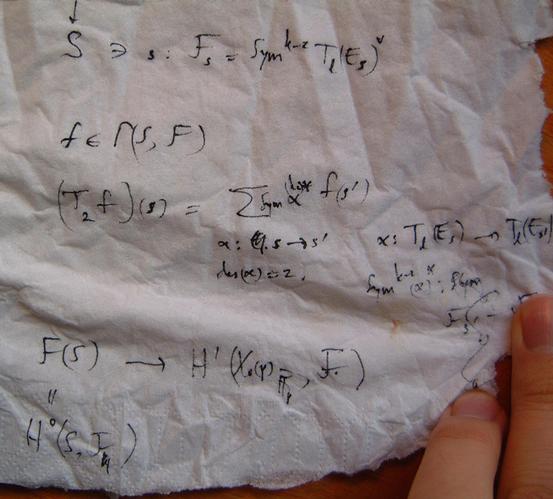 ↓
S ∋ s : F_s = Sym^{k-2} T_l(E_s)^∨
f ∈ Γ(S, F)
(T_2 f)(s) = ∑ Sym^{k-2} α^* f(s')
α : s → s'
deg(α) = 2,
α : T_l(E_s) → T_l(E_s')
Sym^{k-2}(α)^* : Sym
F(S) → H^1(X_0(p)_{\overline{F}_p}, F)
||
H^0(S, F)